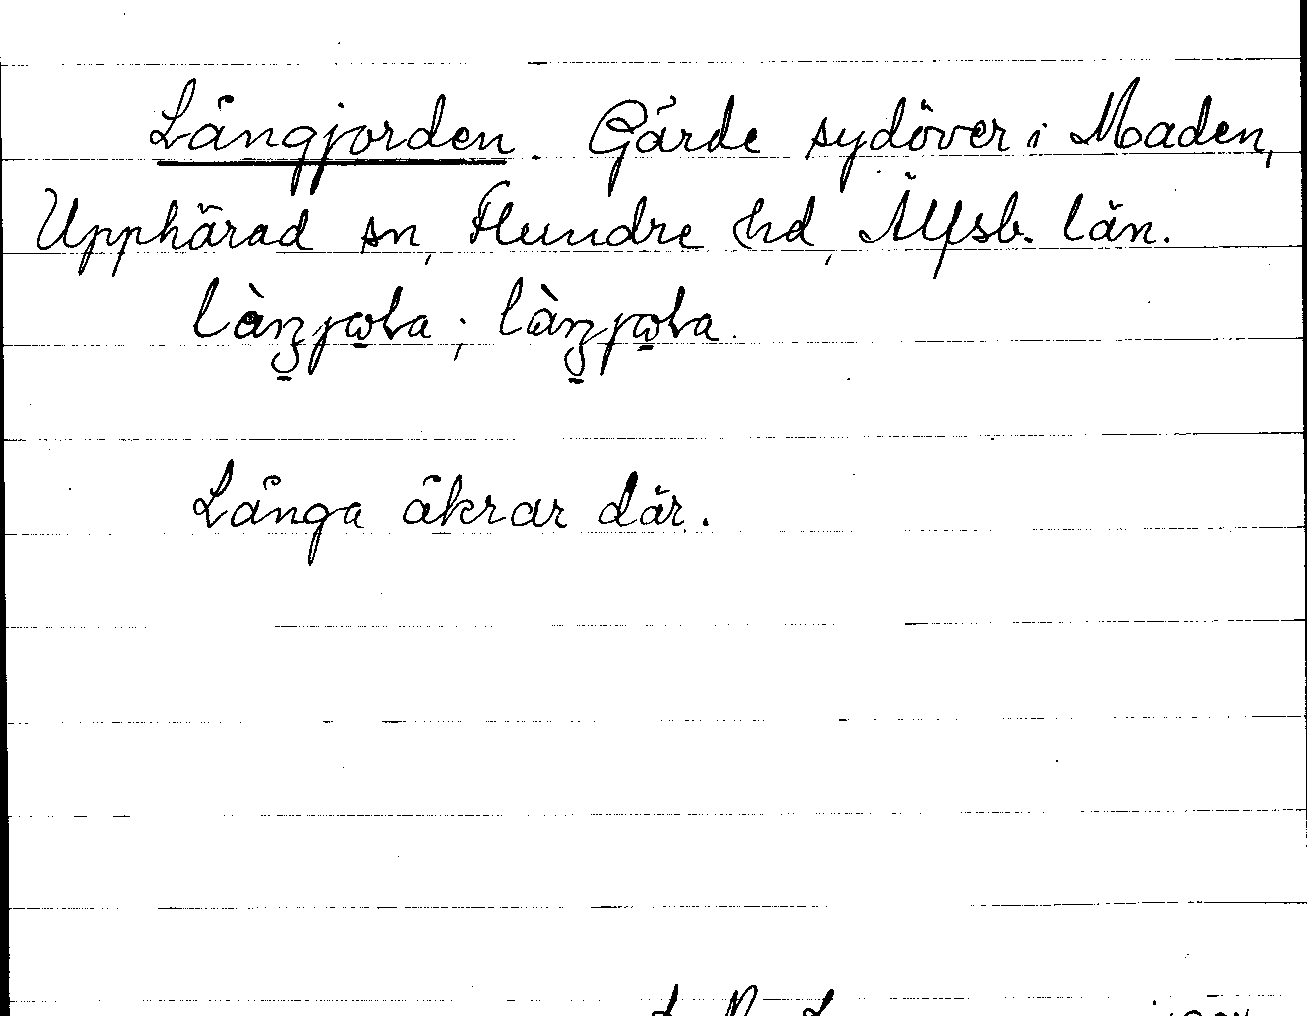 Långjorden. Gärde sydöver i Maden,
Upphärad sn, Flundre hd, Älfsb. län.
Långa åkrar där.